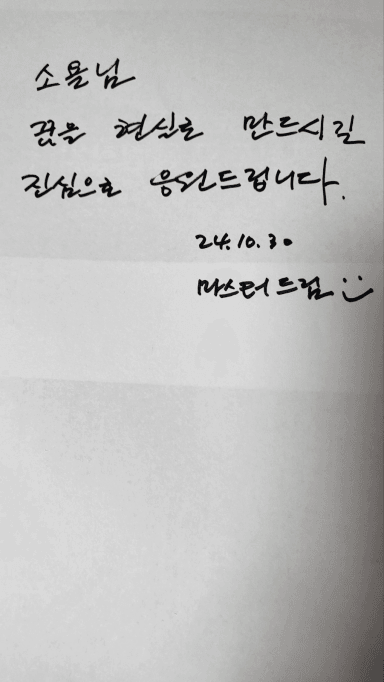 소율님
꿈을 현실로 만드시길
진심으로 응원드립니다.
24.10.30
마스터드림